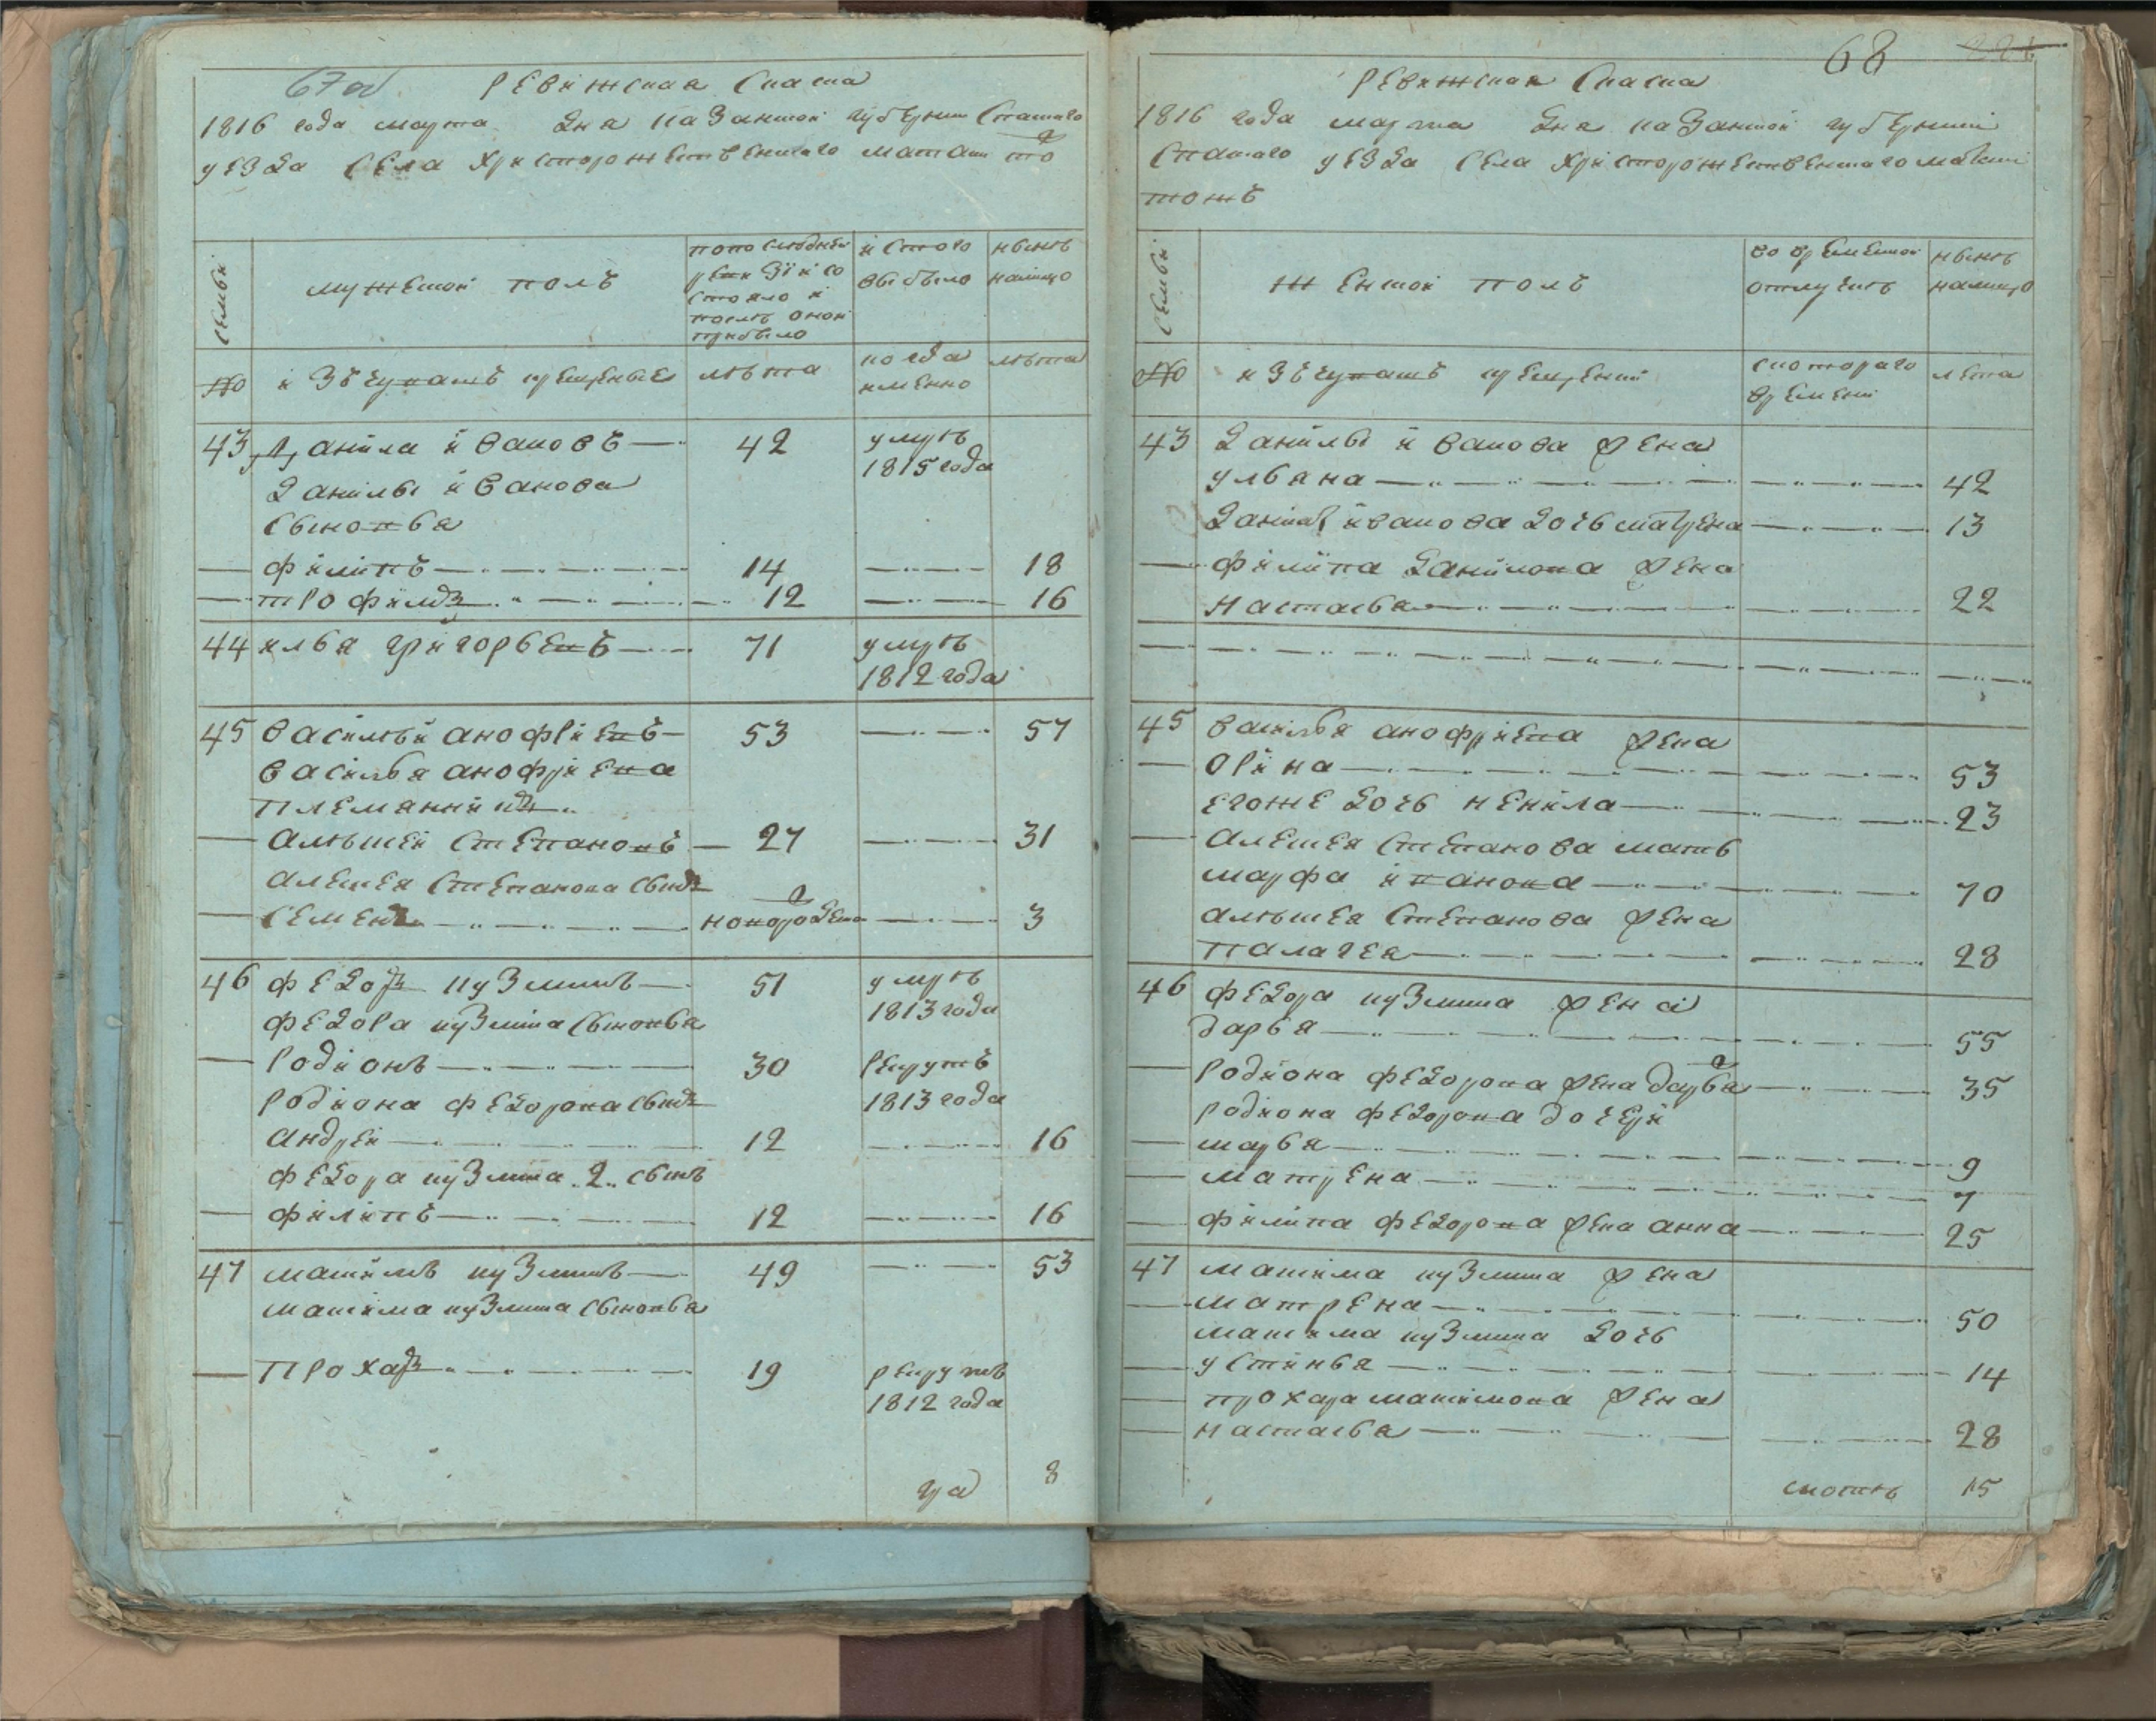 67об
Ревижская скаска
1816 года марта дня казанской губернии спаскаго
уезда села христорожественскаго маташ то
семьи
мужеской полъ
попоследней
ревизии со
стояло и
после оной
прибыло
и стого
выбыло
ныне
налицо
№
изъ чувашъ крещеные
лета
когда
имянно
лета
43 Данила ивановъ 42 умре
1815 года
Данилы иванова
сыновья
филипъ 14 18
трофимъ 12 16
44 илья григорьевъ 71 умре
1812 года
45 василей анофриевъ 53 57
василья анофриева
племянникъ
алексей степановъ 27 31
алексея степанова сынъ
семенъ новорожден 3
46 федоръ кузминъ 51 умре
1813 года
федора кузмина сыновья
родионъ 30 рекрутъ
родиона федорова сынъ 1813 года
андрей 12 16
федора кузмина 2 сынъ
филипъ 12 16
47 максимъ кузминъ 49 53
максима кузмина сыновья
прохаръ 19 рекрутъ
1812 года
8
68
Ревижская скаска
1816 года марта дня казанской губернии
спаскаго уезда села христорожественскаго матаки
тожъ
семьи
женской полъ
во временной
отлучке
ныне
налицо
№
изъ чувашъ крещений
скотораго
времени
лета
43 Данилы иванова жена
ульяна 42
Данилы иванова дочь матрена 13
филипа данилова жена
настасья 22
45 василья анофриева жена
орина 53
егоже дочь ненила 23
алексея степанова мать
марфа иванова 70
алексея степанова жена
палагея 28
46 федора кузмина жена
дарья 55
родиона федорова жена дарья 35
родиона федорова дочери
марья 9
матрена 7
филипа федорова жена анна 25
47 максима кузмина жена
матрена 50
максима кузмина дочь
устинья 14
прохара максимова жена
настасья 28
15